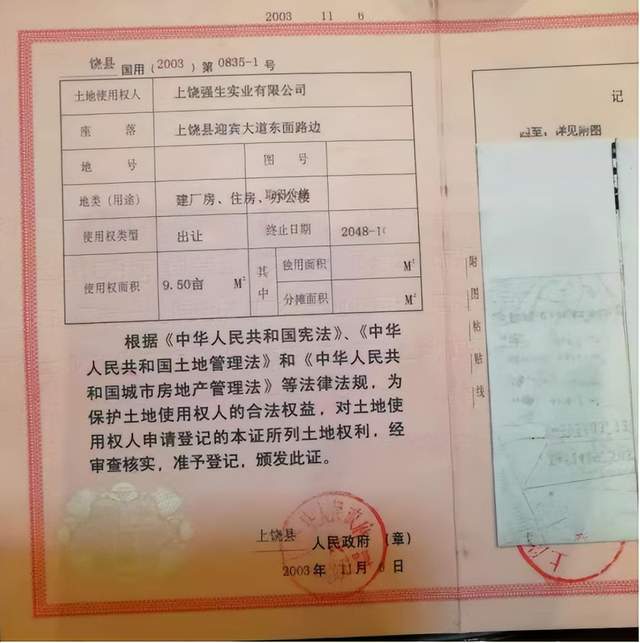 2003 11 6
饶县 国用(2003)第 0835-1 号
土地使用权人 上饶强生实业有限公司
座落 上饶县迎宾大道东面路边
地号 图号
地类(用途) 建厂房、住房,办公楼
使用权类型 出让 终止日期 2048-1
使用权面积 9.50亩 M² 其中 独用面积 M²
分摊面积 M²
根据《中华人民共和国宪法》、《中华
人民共和国土地管理法》和《中华人民共
和国城市房地产管理法》等法律法规,为
保护土地使用权人的合法权益,对土地使
用权人申请登记的本证所列土地权利,经
审查核实,准予登记,颁发此证。
上饶县 人民政府(章)
2003年 11月 6日
记
四至:详见附图
附图粘贴线